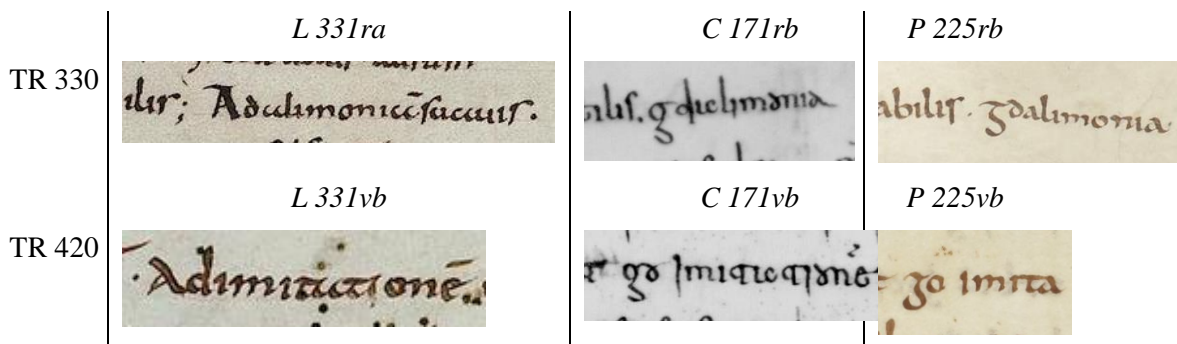 L 331ra C 171rb P 225rb
TR 330
ilis; Adalimoniā suauis.
ilis. g dielimonia
abilis. gdalimonia
L 331vb C 171vb P 225vb
TR 420
· Adimitationē
go imitationē
go imita